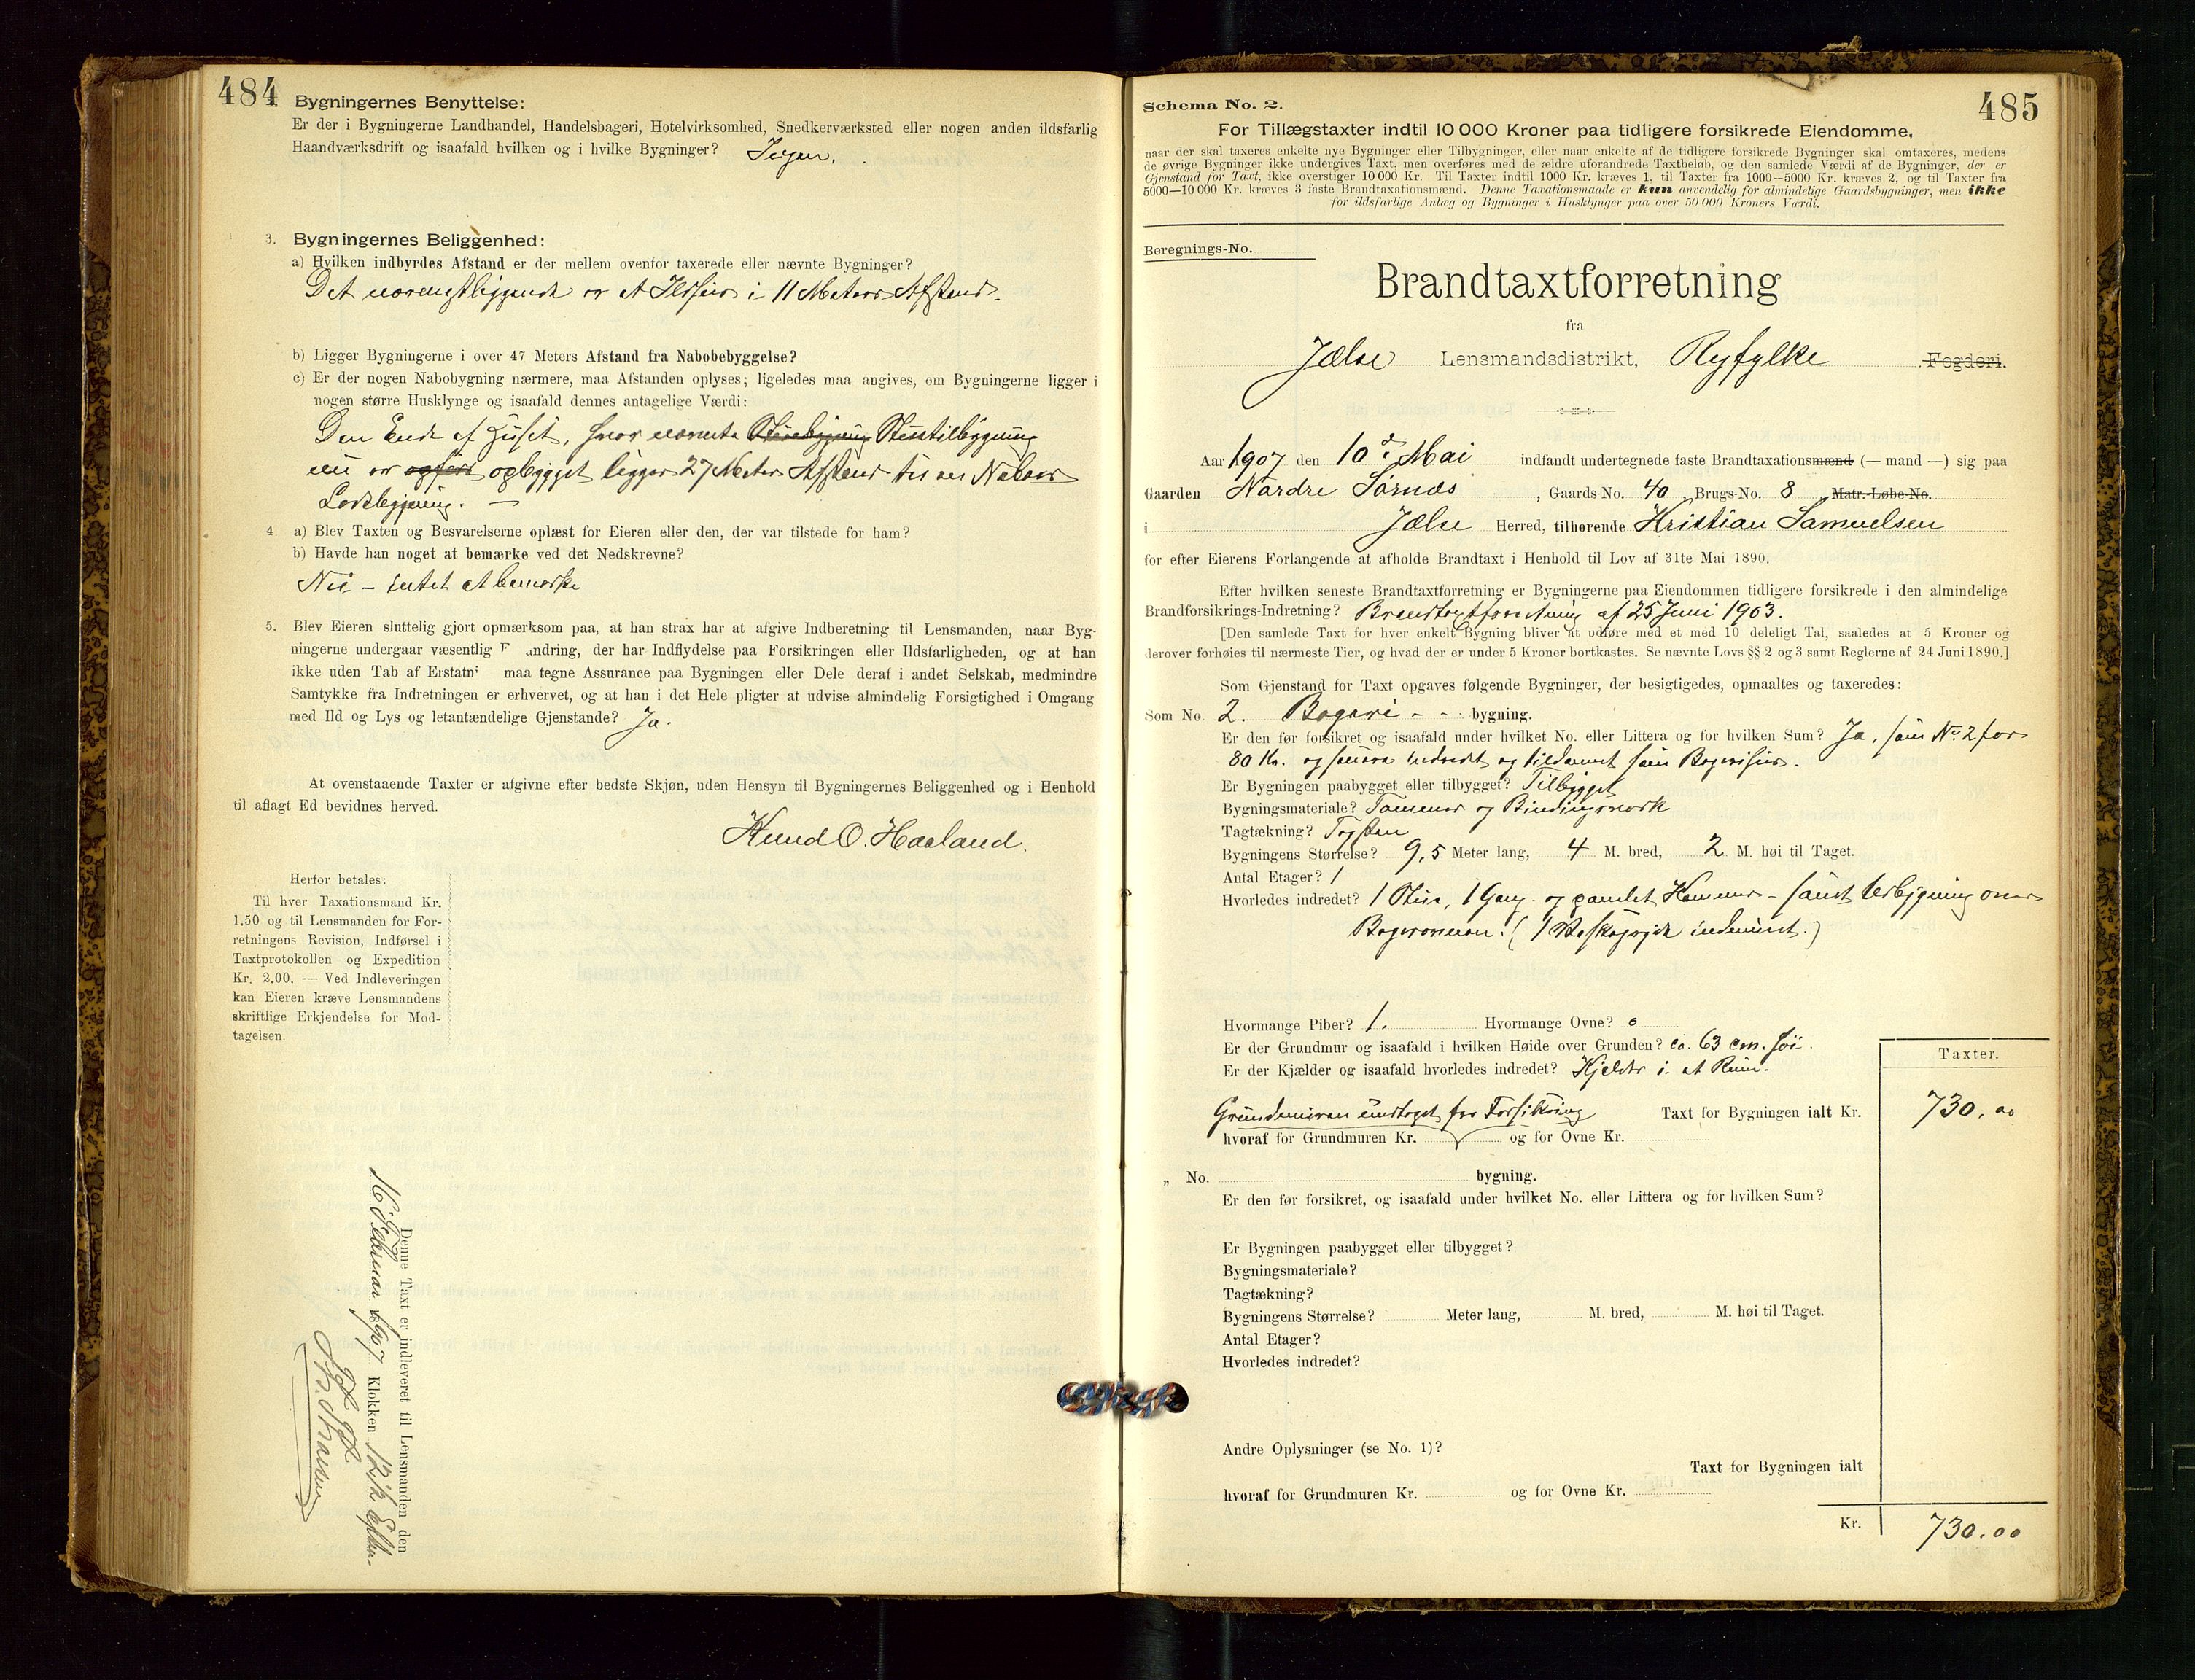 484
Bygningernes Benyttelse:
Er der i Bygningerne Landhandel, Handelsbageri, Hotelvirksomhed, Snedkerværksted eller nogen anden ildsfarlig
Haandværksdrift og isaafald hvilken og i hvilke Bygninger? Ingen.
3. Bygningernes Beliggenhed:
a) Hvilken indbyrdes Afstand er der mellem ovenfor taxerede eller nævnte Bygninger?
Det nærmestliggende er et Ildhus i 11 Meters Afstand.
b) Ligger Bygningerne i over 47 Meters Afstand fra Nabobebyggelse?
c) Er der nogen Nabobygning nærmere, maa Afstanden oplyses; ligeledes maa angives, om Bygningerne ligger i
nogen større Husklynge og isaafald dennes antagelige Værdi:
Den Ende af Huset, hvor nævnte Stuebygning Stuetilbygning
nu er opført opbygget ligger 27 Meter Afstand til en Nabos
Lodebygning. —
4. a) Blev Taxten og Besvarelserne oplæst for Eieren eller den, der var tilstede for ham?
b) Havde han noget at bemærke ved det Nedskrevne?
Nei – intet at bemærke
5. Blev Eieren sluttelig gjort opmærksom paa, at han strax har at afgive Indberetning til Lensmanden, naar Byg-
ningerne undergaar væsentlig F andring, der har Indflydelse paa Forsikringen eller Ildsfarligheden, og at han
ikke uden Tab af Erstatn maa tegne Assurance paa Bygningen eller Dele deraf i andet Selskab, medmindre
Samtykke fra Indretningen er erhvervet, og at han i det Hele pligter at udvise almindelig Forsigtighed i Omgang
med Ild og Lys og letantændelige Gjenstande? Ja.
At ovenstaaende Taxter er afgivne efter bedste Skjøn, uden Hensyn til Bygningernes Beliggenhed og i Henhold
til aflagt Ed bevidnes herved.
Knud O. Haaland.
Herfor betales:
Til hver Taxationsmand Kr.
1.50 og til Lensmanden for For-
retningens Revision, Indførsel i
Taxtprotokollen og Expedition
Kr. 2.00. — Ved Indleveringen
kan Eieren kræve Lensmandens
skriftlige Erkjendelse for Mod-
tagelsen.
Denne Taxt er indleveret til Lensmanden den
16 Februar 1907 Klokken 12 1/2 Efter.
485
Schema No. 2.
For Tillægstaxter indtil 10 000 Kroner paa tidligere forsikrede Eiendomme,
naar der skal taxeres enkelte nye Bygninger eller Tilbygninger, eller naar enkelte af de tidligere forsikrede Bygninger skal omtaxeres, medens
de øvrige Bygninger ikke undergives Taxt, men overføres med de ældre uforandrede Taxtbeløb, og den samlede Værdi af de Bygninger, der er
Gjenstand for Taxt, ikke overstiger 10 000 Kr. Til Taxter indtil 1000 Kr. kræves 1, til Taxter fra 1000—5000 Kr. kræves 2, og til Taxter fra
5000—10 000 Kr. kræves 3 faste Brandtaxationsmænd. Denne Taxationsmaade er kun anvendelig for almindelige Gaardsbygninger, men ikke
for ildsfarlige Anlæg og Bygninger i Husklynger paa over 50 000 Kroners Værdi.
Beregnings-No.
Brandtaxtforretning
fra
Jælse Lensmandsdistrikt, Ryfylke Fogderi.
Aar 1907 den 10de Mai indfandt undertegnede faste Brandtaxationsmænd (— mand —) sig paa
Gaarden Nordre Sørnæs, Gaards-No. 40 Brugs-No. 8 Matr.-Løbe-No.
i Jælse Herred, tilhørende Kristian Samuelsen
for efter Eierens Forlangende at afholde Brandtaxt i Henhold til Lov af 31te Mai 1890.
Efter hvilken seneste Brandtaxtforretning er Bygningerne paa Eiendommen tidligere forsikrede i den almindelige
Brandforsikrings-Indretning? Brandtaxtforretning af 25 Juni 1903.
[Den samlede Taxt for hver enkelt Bygning bliver at udføre med et med 10 deleligt Tal, saaledes at 5 Kroner og
derover forhøies til nærmeste Tier, og hvad der er under 5 Kroner bortkastes. Se nævnte Lovs §§ 2 og 3 samt Reglerne af 24 Juni 1890.]
Som Gjenstand for Taxt opgaves følgende Bygninger, der besigtigedes, opmaaltes og taxeredes:
Som No. 2. Bageri - - bygning.
Er den før forsikret og isaafald under hvilket No. eller Littera og for hvilken Sum? Ja, som No. 2 for
80 Kr. og senere indredet og tildannet som Bagerihus.
Er Bygningen paabygget eller tilbygget? Tilbygget
Bygningsmateriale? Tømmer og Bindingsværk
Tagtækning? Tagsten
Bygningens Størrelse? 9,5 Meter lang, 4 M. bred, 2 M. høi til Taget.
Antal Etager? 1
Hvorledes indredet? 1 Stue, 1 Gang og gamlet Kammer – samt Udbygning over
Bagerovnen. (1 indmuret.)
Hvormange Piber? 1. Hvormange Ovne? 0
Er der Grundmur og isaafald i hvilken Høide over Grunden? ca. 63 cm. høi.
Er der Kjælder og isaafald hvorledes indredet? Kjelder i et Rum.
Taxter.
Grundmuren undtaget fra Forsikring Taxt for Bygningen ialt Kr. 730.00
hvoraf for Grundmuren Kr. og for Ovne Kr.
„ No. bygning.
Er den før forsikret, og isaafald under hvilket No. eller Littera og for hvilken Sum?
Er Bygningen paabygget eller tilbygget?
Bygningsmateriale?
Tagtækning?
Bygningens Størrelse? Meter lang, M. bred, M. høi til Taget.
Antal Etager?
Hvorledes indredet?
Andre Oplysninger (se No. 1)?
Taxt for Bygningen ialt
hvoraf for Grundmuren Kr. og for Ovne Kr.
Kr. 730.00